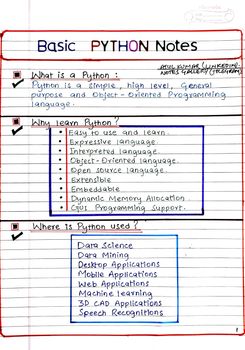 Basic PYTHON Notes
ATUL KUMAR (LINKEDIN).
NOTES GALLERY (TELEGRAM)
What is a Python :
Python is a simple, high level, General
purpose and Object-Oriented Programming
language.
Why learn Python ?
Easy to use and learn.
Expressive language.
Interpreted language.
Object-Oriented language.
Open source language.
Extensible
Embeddable
Dynamic Memory Allocation
Programming Support.
Where is Python used ?
Data Science
Data Mining
Desktop Applications
Mobile Applications
Web Applications
Machine learning
3D CAD Applications
Speech Recognitions
1